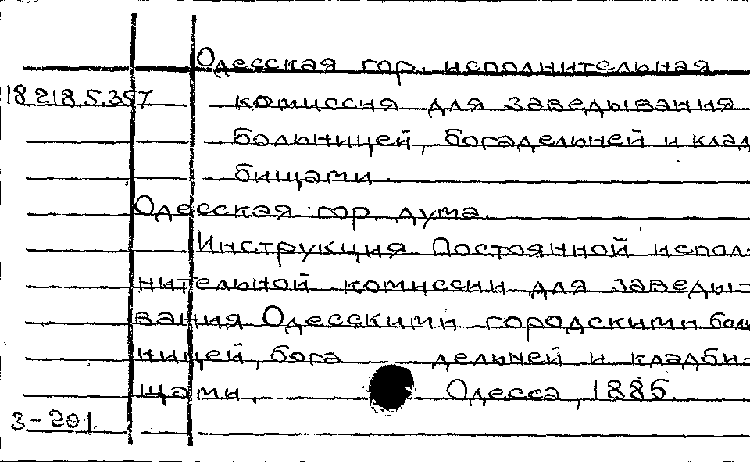 Одесская гор. исполнительная
18 218 5.357 комиссия для заведывания
больницей, богадельней и клад
бищами.
Одесская гор. дума.
Инструкция Постоянной испол-
нительной комиссии для заведы-
вания Одесскими городскими боль
ницей, бога дельней и кладби-
щами. Одесса, 1885.
3-201